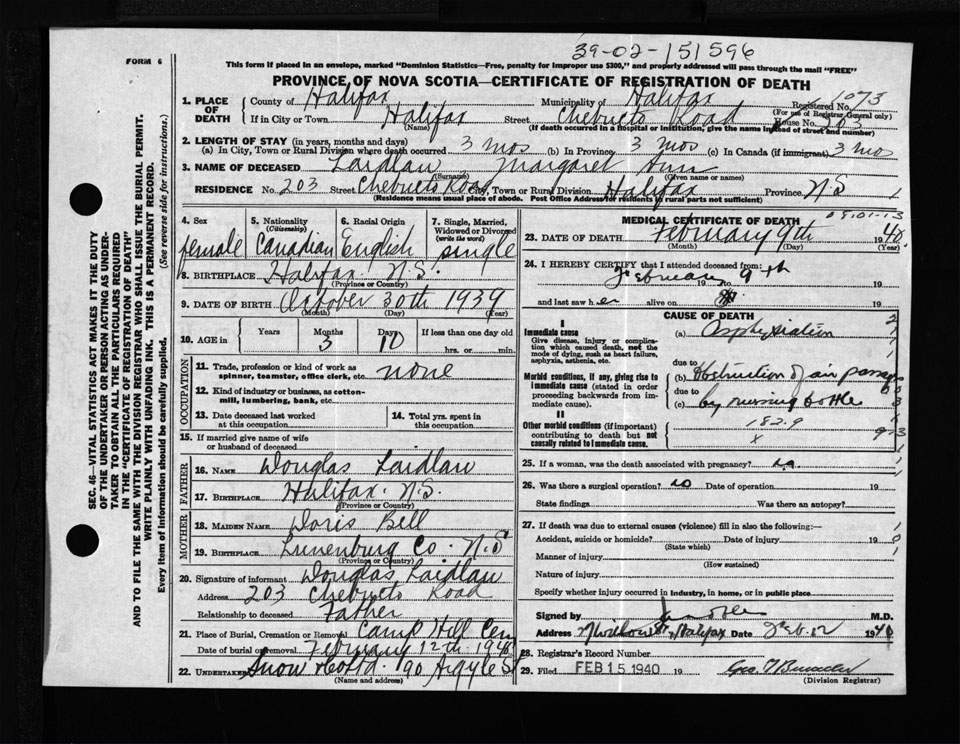 39-02-151596
FORM 6
This form if placed in an envelope, marked "Dominion Statistics—Free, penalty for improper use $300," and properly addressed will pass through the mail "FREE"
PROVINCE OF NOVA SCOTIA—CERTIFICATE OF REGISTRATION OF DEATH
1. PLACE OF DEATH
County of Halifax Municipality of Halifax Registered No. 1073
(For use of Registrar General only)
If in City or Town Halifax Street Chebucto Road House No. 203
(Name) (If death occurred in a hospital or institution, give the name instead of street and number)
2. LENGTH OF STAY (in years, months and days)
(a) In City, Town or Rural Division where death occurred 3 mos (b) In Province 3 mos (c) In Canada (if immigrant) 3 mos
3. NAME OF DECEASED Laidlaw Margaret Ann
(Surname) (Given name or names)
RESIDENCE No. 203 Street Chebucto Road City, Town or Rural Division Halifax Province N.S 1
(Residence means usual place of abode. Post Office Address for residents in rural parts not sufficient)
4. Sex female
5. Nationality (Citizenship) Canadian
6. Racial Origin English
7. Single, Married, Widowed or Divorced (write the word) single
8. BIRTHPLACE Halifax N.S.
(Province or Country)
9. DATE OF BIRTH October 30th 1939
(Month) (Day) (Year)
10. AGE in Years Months 3 Days 10 If less than one day old
hrs. or min.
OCCUPATION
11. Trade, profession or kind of work as spinner, teamster, office clerk, etc. none
12. Kind of industry or business, as cotton-mill, lumbering, bank, etc.
13. Date deceased last worked at this occupation
14. Total yrs. spent in this occupation
15. If married give name of wife or husband of deceased
FATHER
16. NAME Douglas Laidlaw
17. BIRTHPLACE Halifax. N.S.
(Province or Country)
MOTHER
18. MAIDEN NAME Doris Bell
19. BIRTHPLACE Lunenburg Co. N.S
(Province or Country)
20. Signature of informant Douglas Laidlaw
Address 203 Chebucto Road
Relationship to deceased Father
21. Place of Burial, Cremation or Removal Camp Hill Cem
Date of burial or removal February 12th 1940
22. UNDERTAKER Snow & Co Ltd. 90 Argyle St
(Name and address)
MEDICAL CERTIFICATE OF DEATH
09101-13
23. DATE OF DEATH February 9th 1940.
(Month) (Day) (Year)
24. I HEREBY CERTIFY that I attended deceased from:
February 9th
19 to 19
and last saw her alive on 19
CAUSE OF DEATH
I
Immediate cause
Give disease, injury or complication which caused death, not the mode of dying, such as heart failure, asphyxia, asthenia, etc.
(a) Asphyxiation
due to
Morbid conditions, if any, giving rise to immediate cause (stated in order proceeding backwards from immediate cause).
(b) Obstruction of air passages
due to
(c) by nursing bottle
II
Other morbid conditions (if important) contributing to death but not causally related to immediate cause.
182.9
x
25. If a woman, was the death associated with pregnancy? no
26. Was there a surgical operation? no Date of operation 19
State findings Was there an autopsy?
27. If death was due to external causes (violence) fill in also the following:—
Accident, suicide or homicide? Date of injury 19
(State which)
Manner of injury
(How sustained)
Nature of injury
Specify whether injury occurred in industry, in home, or in public place
Signed by M.D.
Address Halifax Date Feb. 12 1940
28. Registrar's Record Number
29. Filed FEB 15 1940 19
(Division Registrar)
SEC. 46—VITAL STATISTICS ACT MAKES IT THE DUTY
OF THE UNDERTAKER OR PERSON ACTING AS UNDER-
TAKER TO OBTAIN ALL THE PARTICULARS REQUIRED
IN THE "CERTIFICATE OF REGISTRATION OF DEATH"
AND TO FILE THE SAME WITH THE DIVISION REGISTRAR WHO SHALL ISSUE THE BURIAL PERMIT.
WRITE PLAINLY WITH UNFADING INK. THIS IS A PERMANENT RECORD.
Every item of information should be carefully supplied. (See reverse side for instructions.)